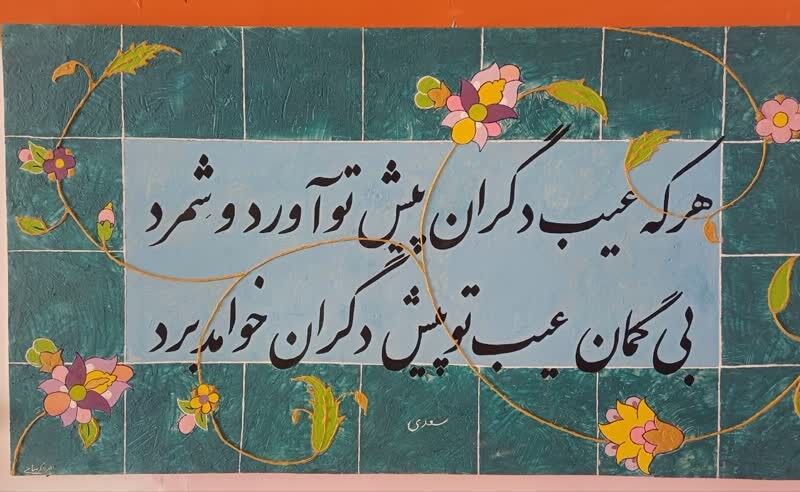 هر که عیب دگران پیش تو آورد و شِمرد
بی گمان عیب تو پیش دگران خواهد برد
سعدی